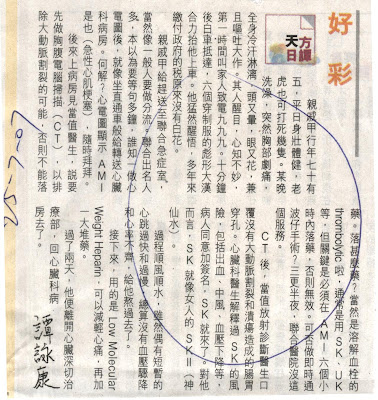 好彩
天方
日譚
親戚甲行年七十有
五，平日身壯體健，老
虎也可打死幾隻。某晚
洗澡，突然胸部劇痛，
全身冷汗淋漓，頭又暈，眼又花，兼
且嘔吐大作。其人醒目，心知不妙，
第一時間叫家人致電九九九。十分鐘
後白車抵達，六個穿制服的彪形大漢
合力抬他上車。他猛然醒悟，多年來
繳付政府的稅原來沒有白花。
親戚甲給趕送至聯合急症室，
當然像一般人要做分流。聯合出名人
多，本以為要等句多鐘，誰知一做心
電圖後，就像坐直通車般給轉送心臟
科病房。何解？心電圖顯示AMI
是也（急性心肌梗塞），隨時拜拜。
後來上病房見當值醫生，說要
先做胸腹電腦掃描（CT），以排
除大動脈割裂的可能，否則不能落
藥。落甚麼藥？當然是溶解血栓的
thrombolytic啦，通常是用SK、UK
等，但關鍵是必須在AMI六個小
時內落藥，否則無效。可否做即時通
波仔手術？三更半夜，聯合醫院沒這
個服務。
CT後，當值放射診斷醫生口
覆沒有大動脈割裂和潰瘍造成的腸胃
穿孔。心臟科醫生解釋過SK的風
險，包括出血、中風、血壓下降等，
病人同意加簽名，SK就來了。對他
而言，SK就像女人的SKⅡ（神
仙水）。
過程順風順水，雖然偶有短暫的
心跳過快和過慢，總算沒有血壓驟降
和心率不齊，給他熬過去了。
接下來，用的是Low Molecular
Weight Heparin，可以減輕心痛，再加
一大堆藥。
過了兩天，他便離開心臟深切治
療部，回心臟科病
房去了。
譚詠康
25-7-07